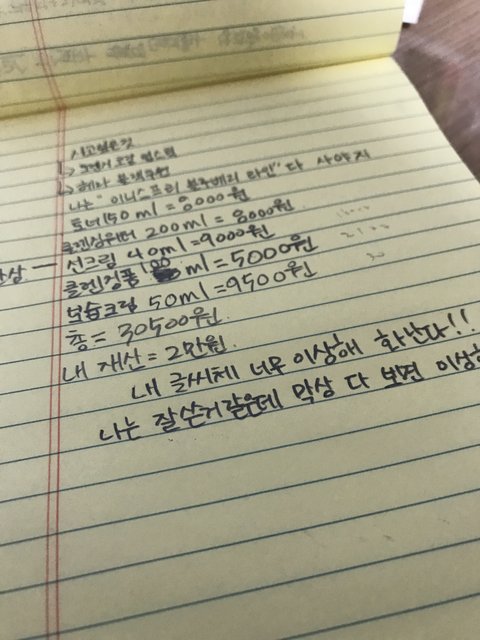 사고싶은것
↳ 로면서 로잘 립스틱
↳ 헤라 블랙쿠션
나는 "이니스프리 블루베리 라인" 다 사야지
토너 150ml = 8000원
클렌징워터 200ml = 8000원
선크림 40ml = 9000원
클렌징폼 100ml = 5000원
보습크림 50ml = 9500원
총 = 30500원
내 재산 = 2만원
내 글씨체 너무 이상해 화난다!!
나는 잘쓴거같은데 막상 다 보면 이상하